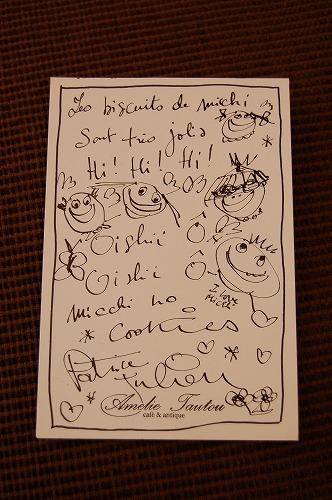 Les biscuits de micchi
Sont très jolis
Hi! Hi! Hi!
Oishii Ô
Oishii Ô
I love
Micchi
micchi no
cookies
Patrice
Julien
Amélie Tautou
café & antique